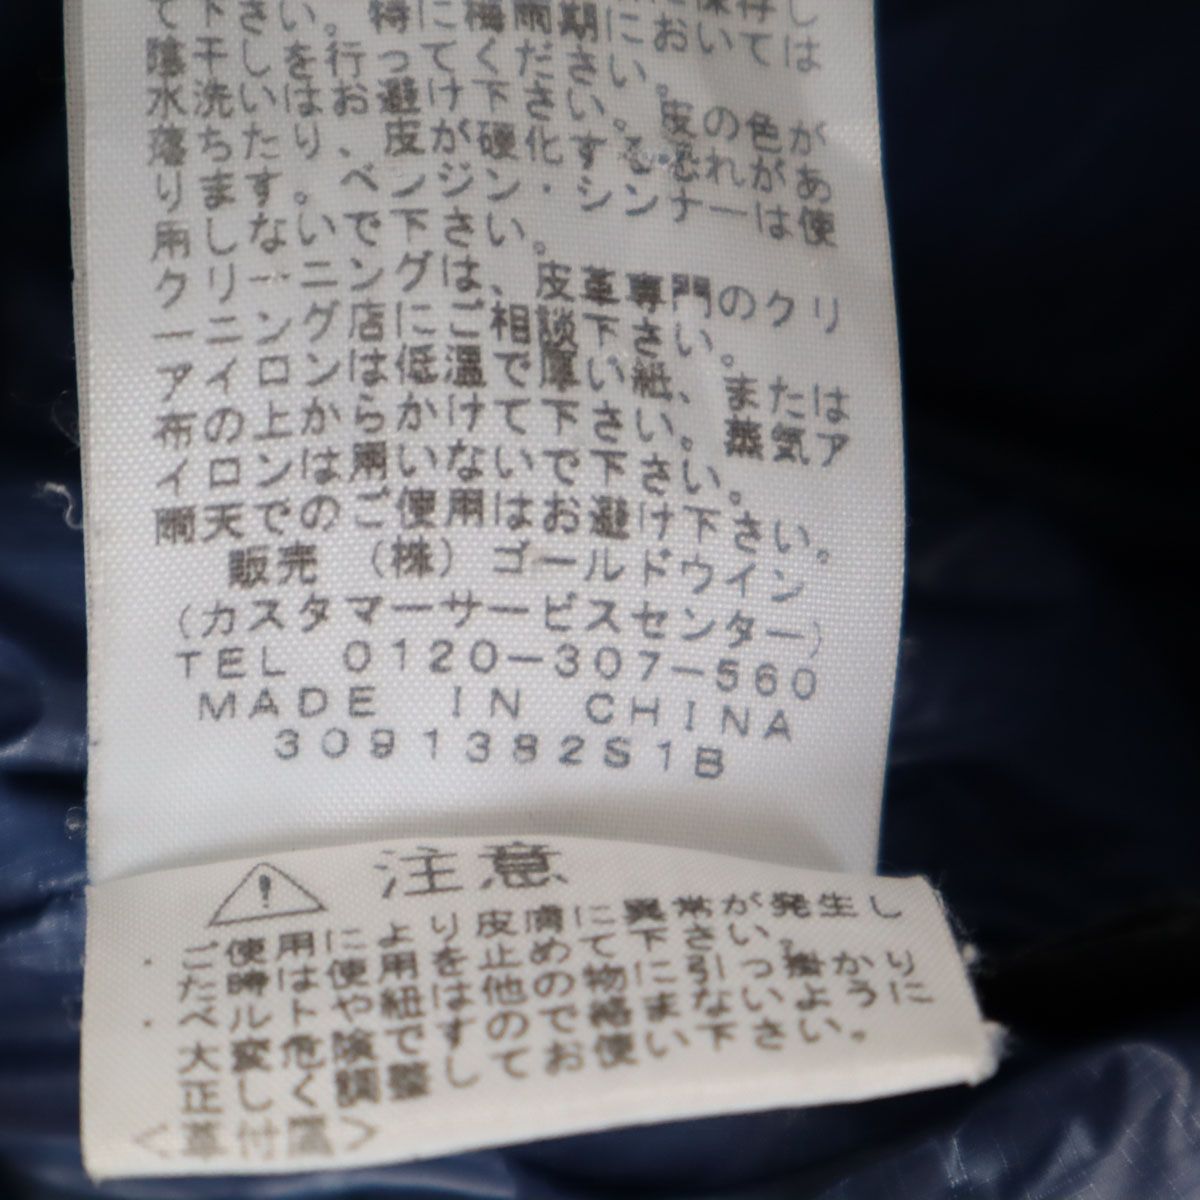 陰干しを行って下さい。
水洗いはお避け下さい。皮の色が
落ちたり、皮が硬化する恐れがあ
ります。ベンジン・シンナーは使
用しないで下さい。
クリーニングは、皮革専門のクリ
ーニング店にご相談下さい。
アイロンは低温で厚い紙、または
布の上からかけて下さい。蒸気ア
イロンは用いないで下さい。
雨天でのご使用はお避け下さい。
販売 (株) ゴールドウイン
(カスタマーサービスセンター)
TEL 0120-307-560
MADE IN CHINA
3091382S1B
注意
・ご使用により皮膚に異常が発生し
た時は使用を止めて下さい。
・ベルトや紐は他の物に引っ掛かり
大変危険ですので絡まないように
正しく調整してお使い下さい。
<革付属>